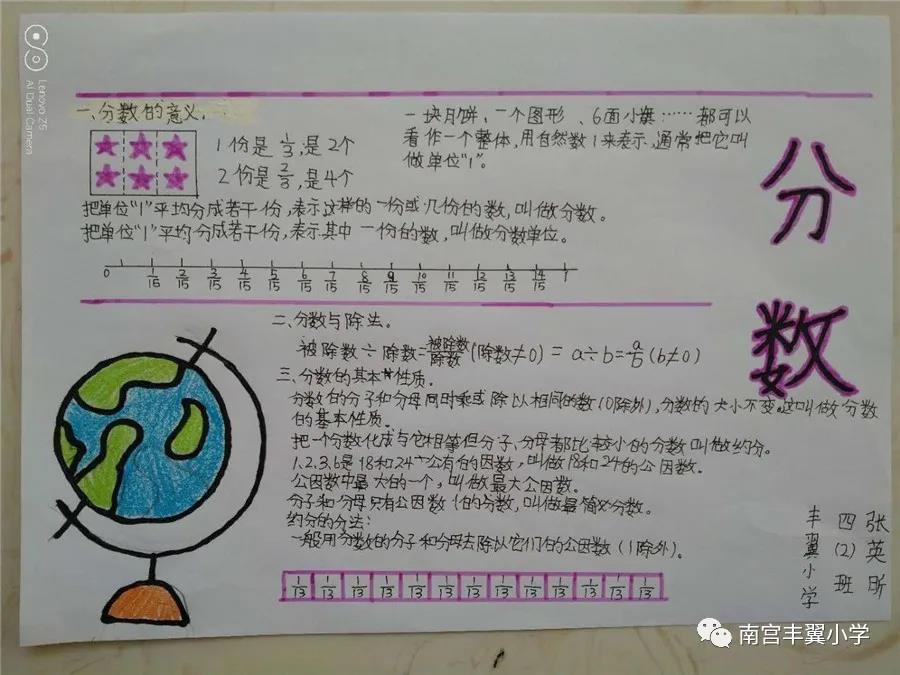 Lenovo Z6
AI Dual Camera
一、分数的意义.
1份是1/3,是2个
2份是2/3,是4个
一块月饼、一个图形、6面小旗……都可以
看作一个整体,用自然数1来表示,通常把它叫
做单位“1”。
把单位“1”平均分成若干份,表示这样的一份或几份的数,叫做分数。
把单位“1”平均分成若干份,表示其中一份的数,叫做分数单位。
0 1/15 2/15 3/15 4/15 5/15 6/15 7/15 8/15 9/15 10/15 11/15 12/15 13/15 14/15 1
分数
二、分数与除法。
被除数÷除数=被除数/除数(除数≠0) = a÷b=a/b(b≠0)
三、分数的基本性质.
分数的分子和分母同时乘或除以相同的数(0除外),分数的大小不变。这叫做分数
的基本性质。
把一个分数化成与它相等但分子、分母都比较小的分数叫做约分。
1、2、3、6是18和24公有的因数,叫做18和24的公因数。
公因数中最大的一个,叫做最大公因数。
分子和分母只有公因数1的分数,叫做最简分数。
约分的分法:
一般用分数的分子和分母去除以它们的公因数(1除外)。
1/13 1/13 1/13 1/13 1/13 1/13 1/13 1/13 1/13 1/13 1/13 1/13 1/13
张英昕
四(2)班
丰翼小学
南宫丰翼小学